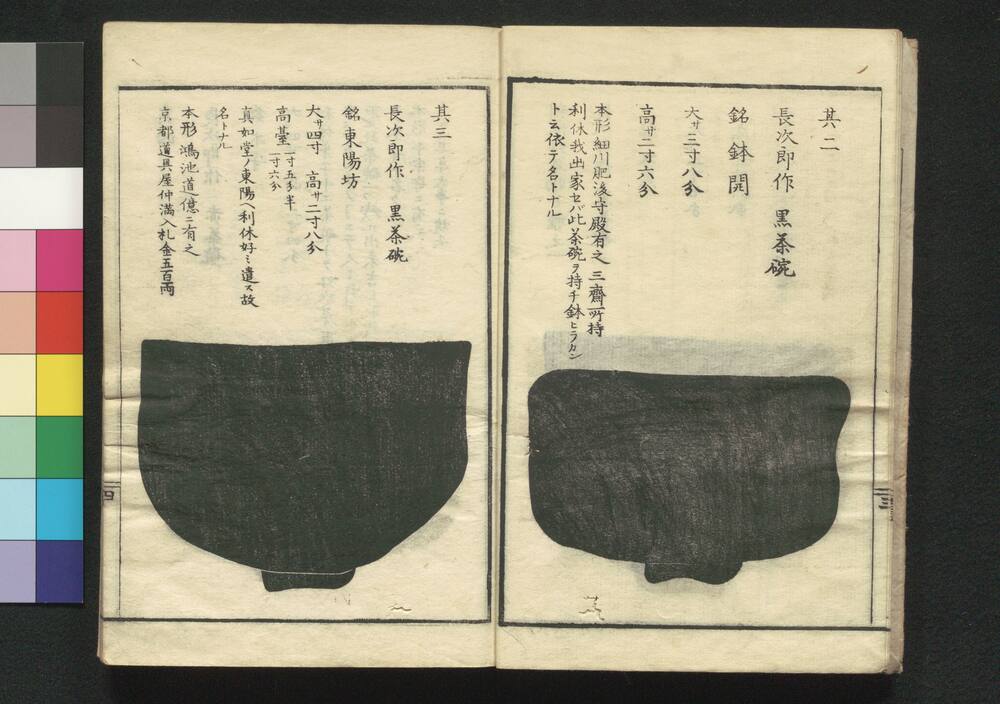 其二
長次郎作 黒茶碗
銘 鉢開
大サ三寸八分
高サ二寸六分
本形細川肥後守殿有之 三齋所持
利休我出家セバ此茶碗ヲ持チ鉢ヒラカン
ト云依テ名トナル
三
其三
長次郎作 黒茶碗
銘 東陽坊
大サ四寸 高サ二寸八分
高臺 一寸五分半
一寸六分
真如堂ノ東陽ヘ利休好ミ遣ス故
名トナル
本形鴻池道億ニ有之
京都道具屋仲満入札金五百両
四